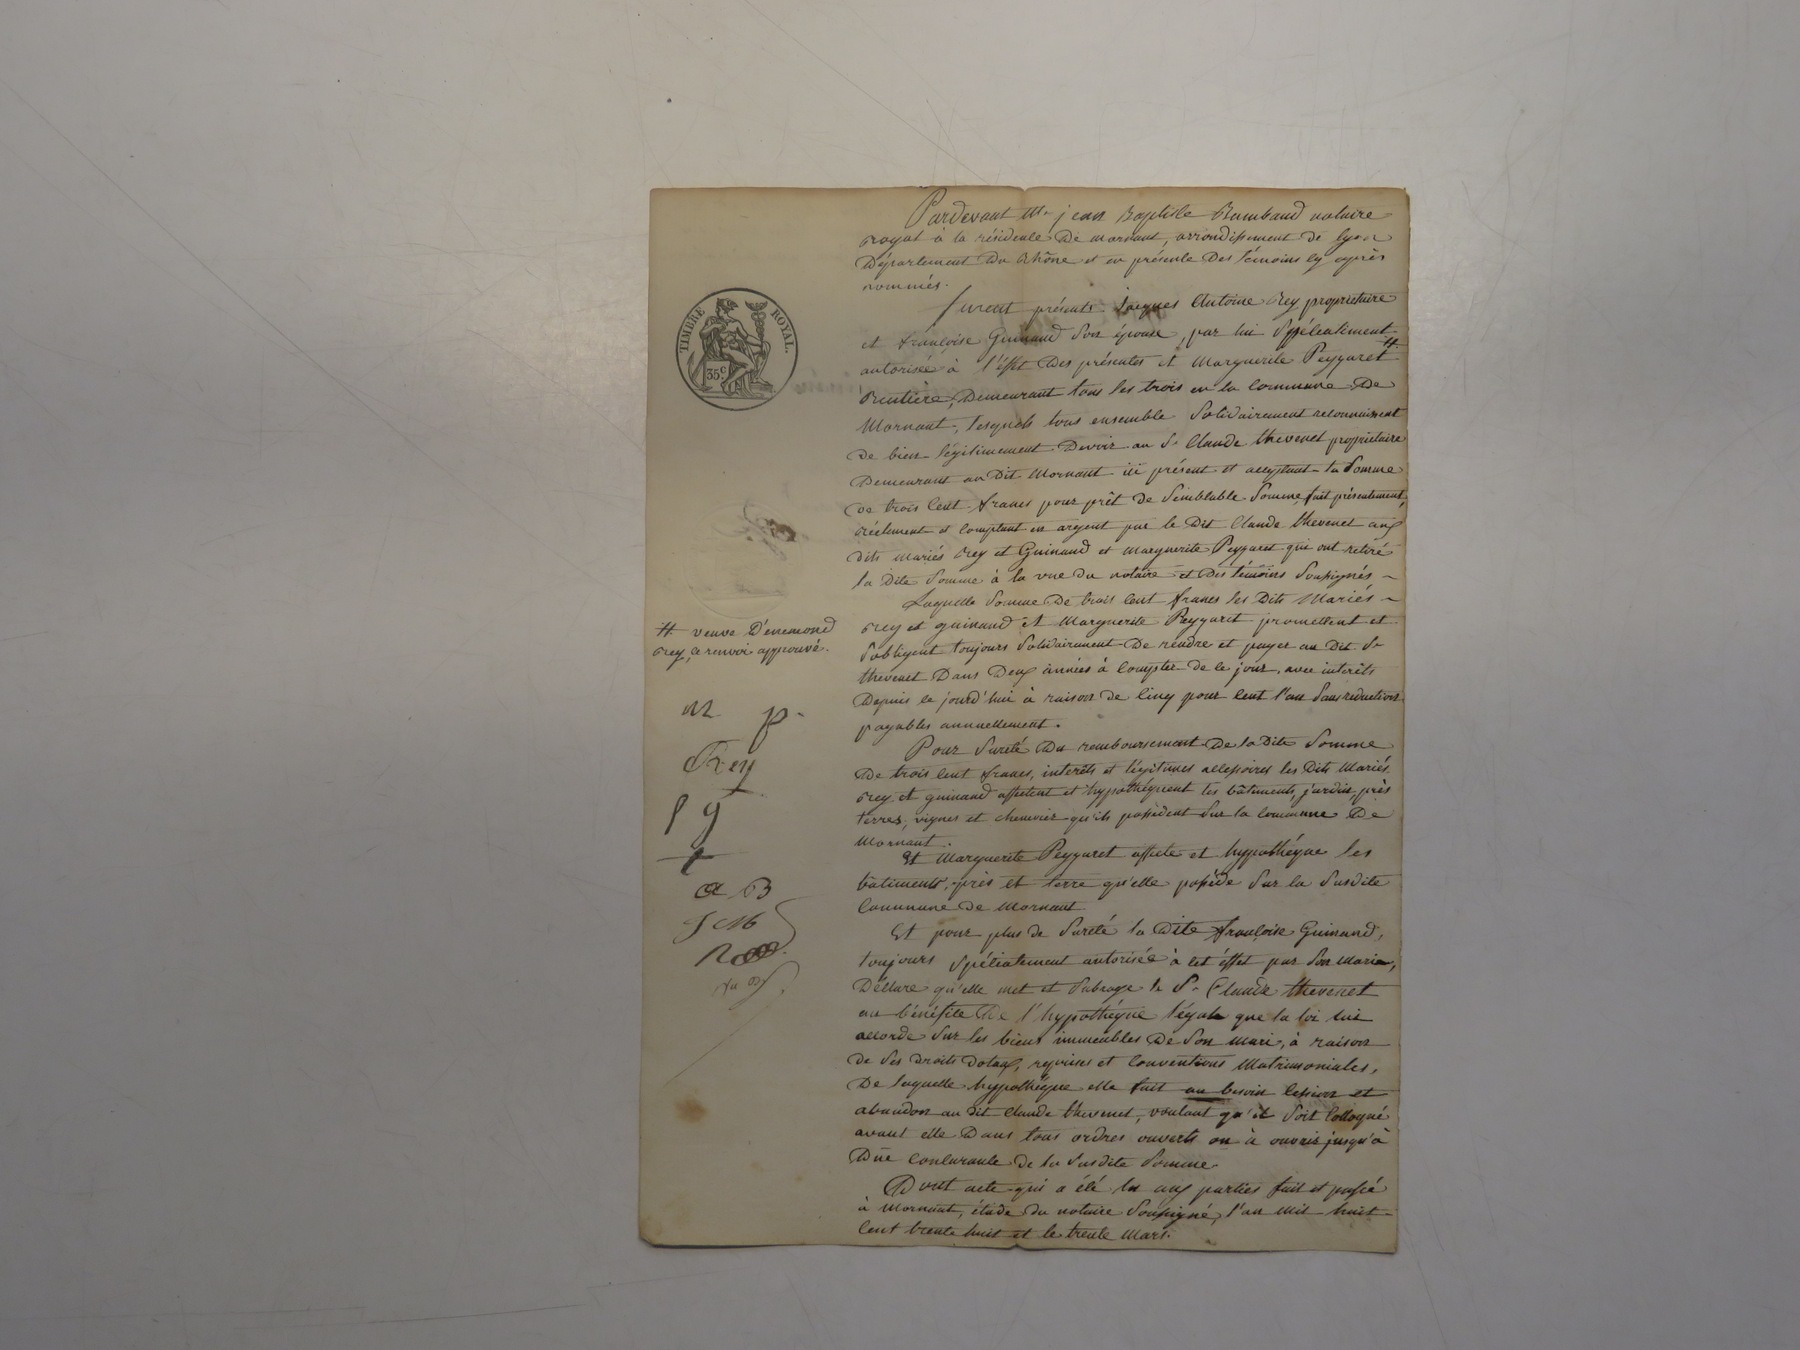 Pardevant Me jean Baptiste Rambaud notaire
royal à la résidence De mornant, arrondissement de lyon
Département Du Rhône et en présence Des témoins cy après
nommés.
furent présents Jacques Antoine Rey propriétaire
et françoise Guinand Son épouse, par lui Spécialement
autorisée à l'effet Des présentes et Marguerite Peyzaret #
Rentière, Demeurant tous les trois en la Commune De
Mornant, lesquels tous ensemble Solidairement reconnaissent
de bien légitimement Devoir au Sr Claude thevenet propriétaire
Demeurant au Dit Mornant ici présent et acceptant la Somme
de trois Cent francs pour prêt de Semblable Somme fait présentement,
réélement et Comptant en argent par le Dit Claude thevenet aux
dits mariés Rey et Guinand et marguerite Peyzaret qui ont retiré
la Dite Somme à la vue du notaire et Des témoins Soussignés ~
Laquelle Somme De trois Cent francs les Dits Mariés ~
Rey et guinand et Marguerite Peyzaret promettent et
S'obligent toujours Solidairement De rendre et payer au Dit Sr
thevenet Dans Deux années à Compter de Ce jour, avec intérêts
Depuis Ce jourd'hui à raison de Cinq pour Cent l'an Sans reduction
payables annuellement.
Pour Sureté Du remboursement De la Dite Somme
De trois Cent francs, intérêts et légitimes accessoires les Dits Mariés
Rey et guinand affectent et hypothéquent les bâtiments, jardin, près
terres, vignes et chenevier qu'ils possèdent Sur la Commune De
Mornant.
Et Marguerite Peyzaret affecte et hyppothéque les
bâtiments, près et terre qu'elle possède Sur la Susdite
Commune de Mornant.
Et pour plus de Sureté la Dite françoise Guinand,
toujours Spécialement autorisée à Cet éffet par Son Mari,
Déclare qu'elle met et Subroge le Sr Claude thevenet
au bénéfice De l'hypothéque légale que la loi lui
accorde Sur les biens immeubles De Son Mari, à raison
de Ses Droits Dotaux, reprises et Conventions Matrimoniales,
De laquelle hyppothéque elle fait au besoin Cession et
abandon au Dit Claude thevenet, voulant qu'il Soit Colloqué
avant elle Dans tous ordres ouverts ou à ouvrir jusqu'à
Dûe Concurance de la Susdite Somme.
Dont acte qui a été lu aux parties fait et passé
à Mornant, étude du notaire Soussigné, l'an mil huit
Cent trente huit et le trente Mars.
TIMBRE ROYAL.
35c
# veuve D'enemond
Rey, Ce renvoi approuvé.
m p.
Rey
f g
a B
J M